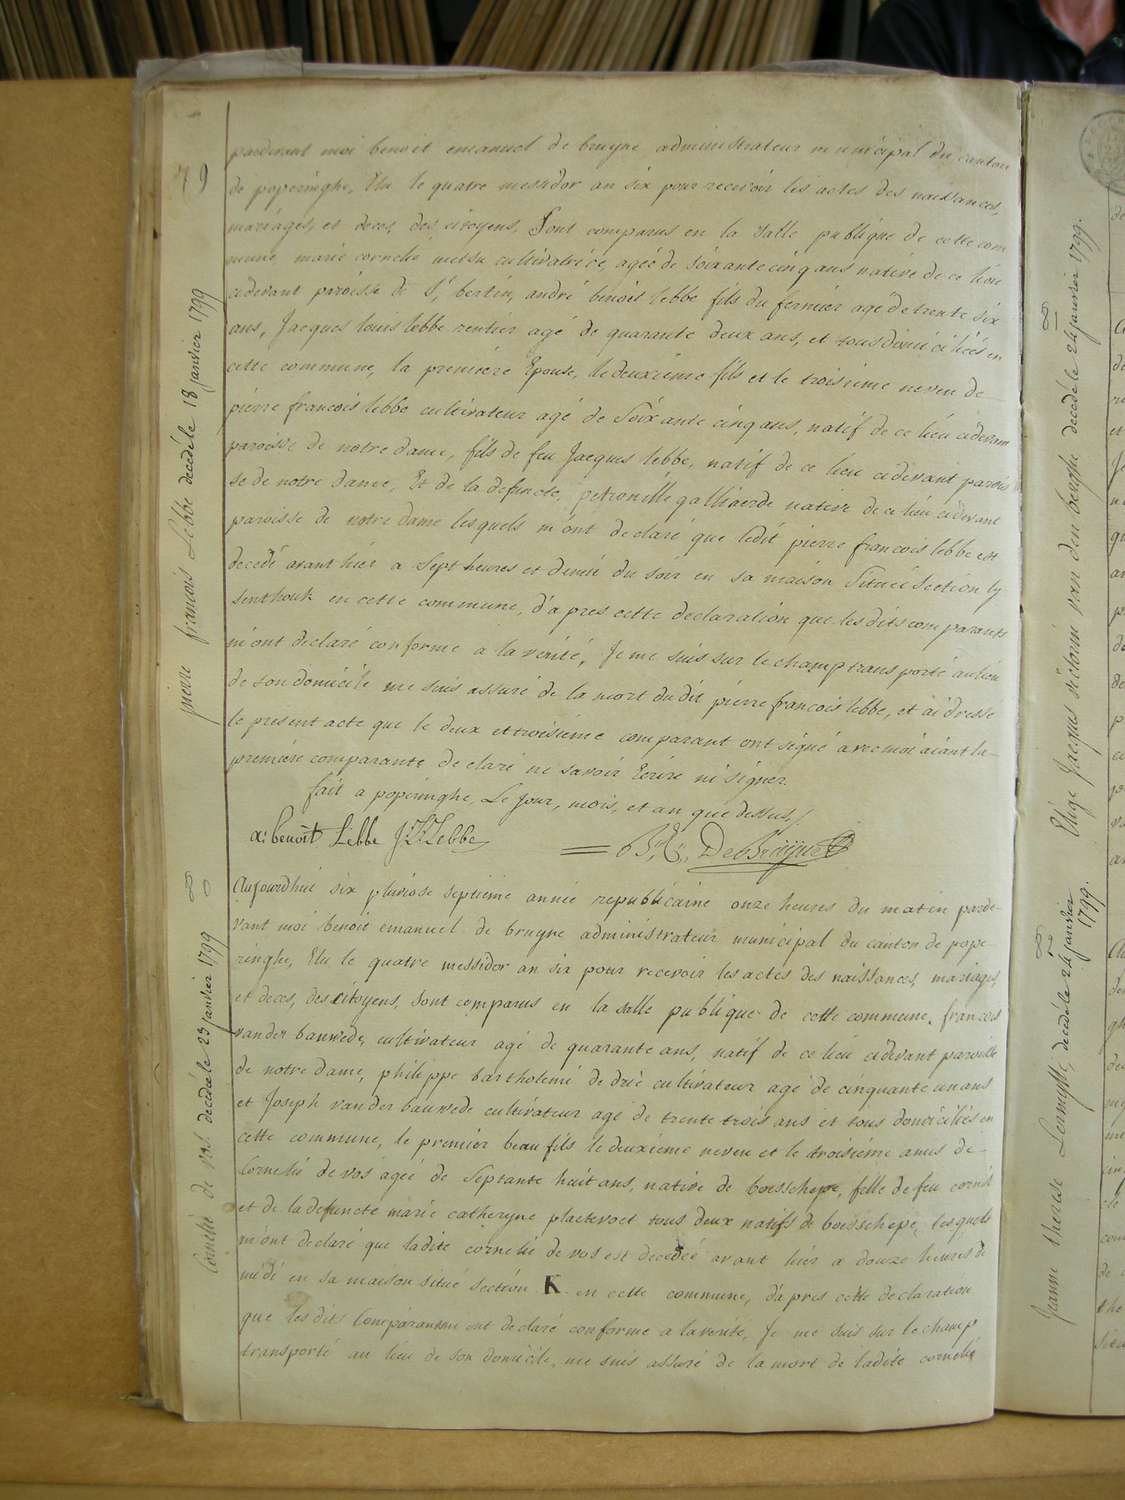 79
pierre francois Lebbe decédé le 18 janvier 1799
pardevant moi benoit emanuel de bruyne administrateur municipal du canton
de poperinghe, Elu le quatre messidor an six pour recevoir les actes des naissances,
mariages, et deces, des citoyens, Sont comparus en la salle publique de cette com
mune marie cornelie metsu cultivatrice agée de soixante cinq ans native de ce lieu
cidevant paroisse de St bertin, andré benoit lebbe fils du fermier agé de trente six
ans, Jacques louis lebbe rentier agé de quarante deux ans, et tous domiciliés en
cette commune, la premiere Epouse, le deuxième fils et le troisieme neveu de
pierre francois lebbe cultivateur agé de Soixante cinq ans, natif de ce lieu cidevant
paroisse de notre dame, fils de feu Jacques lebbe, natif de ce lieu cidevant parois
se de notre dame, Et de la defuncte, petronille galliaerde native de ce lieu cidevant
paroisse de notre dame lesquels m'ont declaré que ledit pierre francois lebbe est
decedé avant hier a Sept heures et demié du soir en sa maison Situéé Section ly
senthouk en cette commune, d'apres cette declaration que les dits comparants
m'ont declaré conforme a la verité, Je me suis sur le champ transporté au lieu
de son domicile me suis assuré de la mort du dit pierre francois lebbe, et ai dressé
le present acte que le deux et troisième comparant ont signé avec moi aiant la
première comparante declaré ne savoir Ecrire ni signer.
fait a poperinghe, Le Jour, mois, et an que dessus,/
a: benoit Lebbe J: L: Lebbe B, E, DeBruyne
8
Cornelie de vos decédéé le 23 janvier 1799
Aujourdhui six pluviose septieme anneé republicaine onze heures du matin parde-
vant moi benoit emanuel de bruyne administrateur municipal du canton de pope
ringhe, Elu le quatre messidor an six pour recevoir les actes des naissances, mariages,
et deces, des citoyens, Sont comparus en la salle publique de cette commune, francois
vander bauwede, cultivateur agé de quarante ans, natif de ce lieu cidevant paroisse
de notre dame, philippe bartholemi de drie cultivateur agé de cinquante un ans
et Joseph vander bauwede cultivateur agé de trente trois ans et tous domiciliés en
cette commune, le premier beau fils le deuxieme neveu et le troisième amis de
Cornelie de vos ageé de Septante huit ans, native de boesschepe, fille de feu cornil
et de la defuncte marie catheryne plaetevoet tous deux natifs de boesschepe, lesquels
m'ont declaré que ladite cornelie de vos est decedéé avant hier a douze heures de
midi en sa maison situé section K en cette commune, d'apres cette declaration
que les dits Comparants m'ont declaré conforme a la verité, Je me suis sur le champ
transporté au lieu de son domicile, me suis assuré de la mort de ladite cornelie
Elige Jacques van den berghe decédé le 24 janvier 1799.
Jeanne therese decéde le 24 janvier
1799.